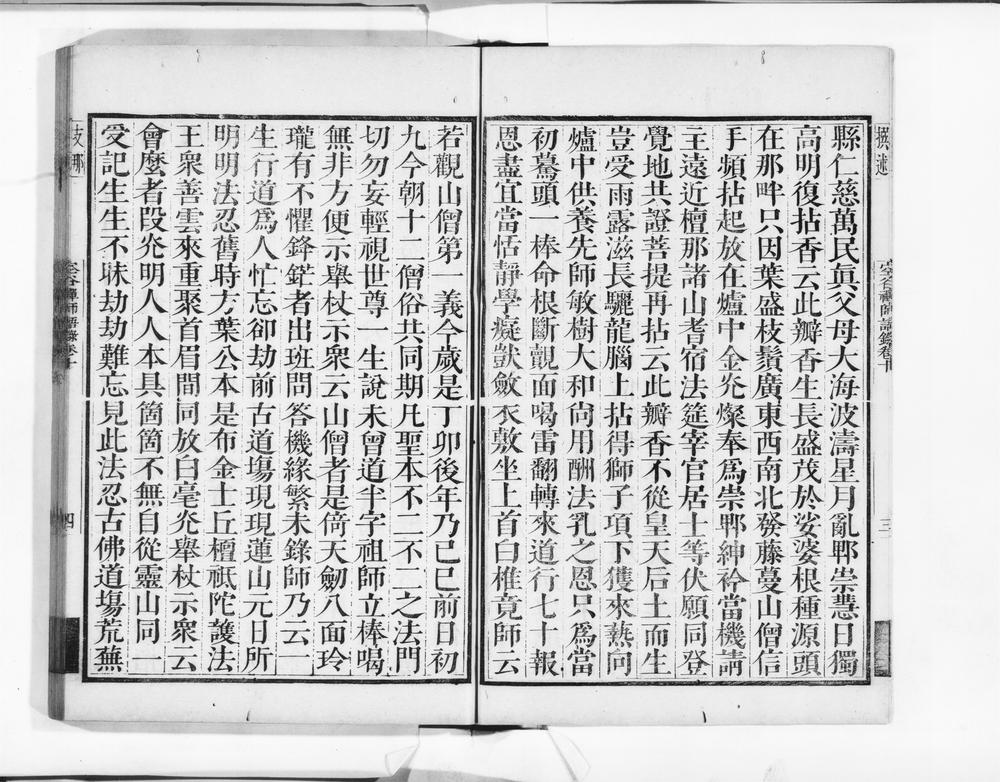 撰述
縣仁慈萬民眞父母大海波濤星月亂鄲崇慧日獨
高明復拈香云此瓣香生長盛茂於娑婆根種源頭
在那畔只因葉盛枝鬚廣東西南北發藤蔓山僧信
手頻拈起放在爐中金光燦奉爲崇鄲紳衿當機請
主遠近檀那諸山耆宿法筵宰官居士等伏願同登
覺地共證菩提再拈云此瓣香不從皇天后土而生
豈受雨露滋長驪龍腦上拈得獅子項下獲來爇向
爐中供養先師敏樹大和尙用酬法乳之恩只爲當
初驀頭一棒命根斷覿面喝雷翻轉來道行七十報
恩盡宜當恬靜學癡獃斂衣敷坐上首白椎竟師云
三
若觀山僧第一義今歲是丁卯後年乃己巳前日初
九今朝十二僧俗共同期凡聖本不二不二之法門
切勿妄輕視世尊一生說未曾道半字祖師立棒喝
無非方便示舉杖示衆云山僧者是倚天劒八面玲
瓏有不懼鋒鋩者出班問答機緣繁未錄師乃云一
生行道爲人忙忘卻劫前古道塲現現蓮山元日所
明明法忍舊時方葉公本是布金士丘檀祇陀護法
王衆善雲來重聚首眉間同放白毫光舉杖示衆云
會麼者段光明人人本具箇箇不無自從靈山同一
受記生生不昧劫劫難忘見此法忍古佛道塲荒蕪
支那
四